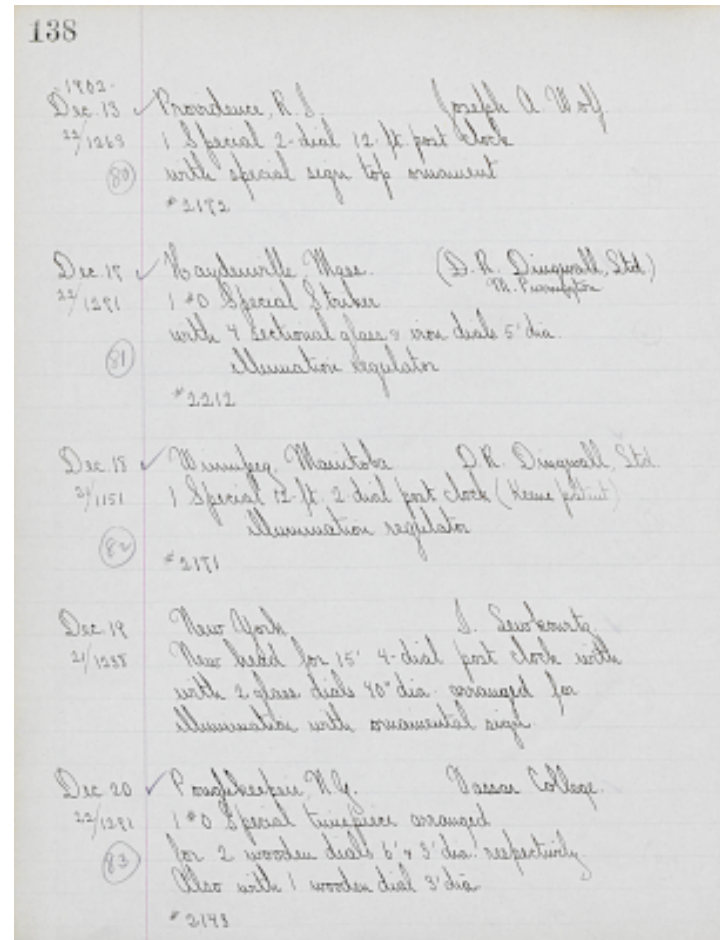 138
1902.
Dec. 13 ✓ Providence, R.I. Joseph A. Wolf
22/1263 1 Special 2-dial 12-ft. post clock
80 with special sign top ornament
#2192
Dec. 17 ✓ Haydenville, Mass. (D.R. Dingwall, Ltd.)
22/1291 1 #0 Special Striker
with 4 sectional glass & iron dials 5' dia.
81 illumination regulator
#2212
Dec. 18 ✓ Winnipeg, Manitoba D.R. Dingwall, Ltd.
21/1151 1 Special 12-ft. 2-dial post clock (
82 illumination regulator
Dec. 19 New York
New head for 15' 4-dial post clock with
with 2 glass dials 40" dia. arranged for
illumination with ornamental sign.
Dec. 20 ✓ Poughkeepsie, N.Y. Vassar College.
22/1281 1 #0 Special timepiece arranged
83 for 2 wooden dials 6' & 3' dia. respectively
Also with 1 wooden dial 3' dia.
#2143